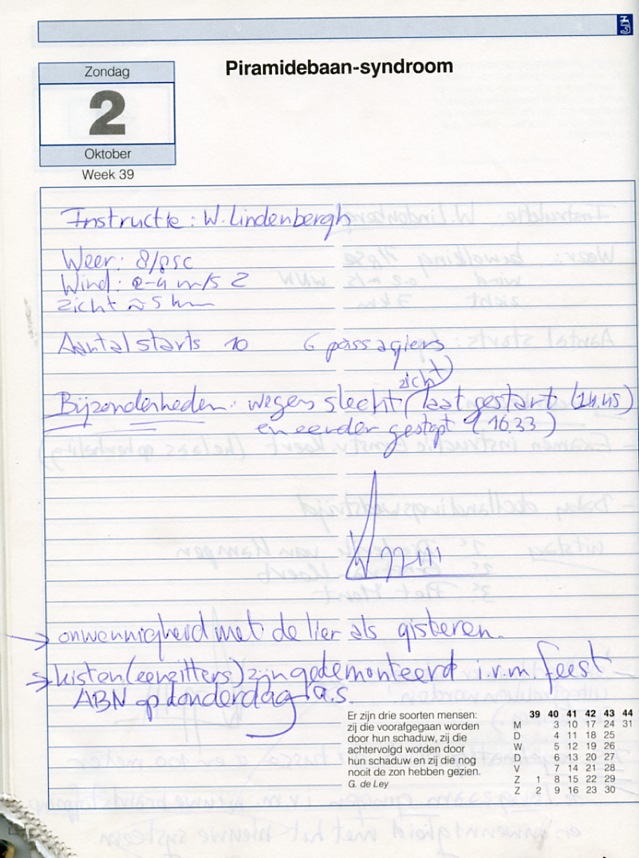 Piramidebaan-syndroom
Zondag
2
Oktober
Week 39
Instructie: W. Lindenbergh
Weer: 8/8sc
Wind: 2-4 m/s Z
Zicht ≈ 5 km
Aantal starts 10 6 passagiers
zicht
Bijzonderheden: wegens slecht laat gestart (14.45)
en eerder gestopt (16.33)
→ onwennigheid met de lier als gisteren.
→ kisten (eenzitters) zijn gedemonteerd i.v.m. feest
ABN op donderdag a.s.
Er zijn drie soorten mensen:
zij die voorafgegaan worden
door hun schaduw, zij die
achtervolgd worden door
hun schaduw en zij die nog
nooit de zon hebben gezien.
G. de Ley
39 40 41 42 43 44
M 3 10 17 24 31
D 4 11 18 25
W 5 12 19 26
D 6 13 20 27
V 7 14 21 28
Z 1 8 15 22 29
Z 2 9 16 23 30